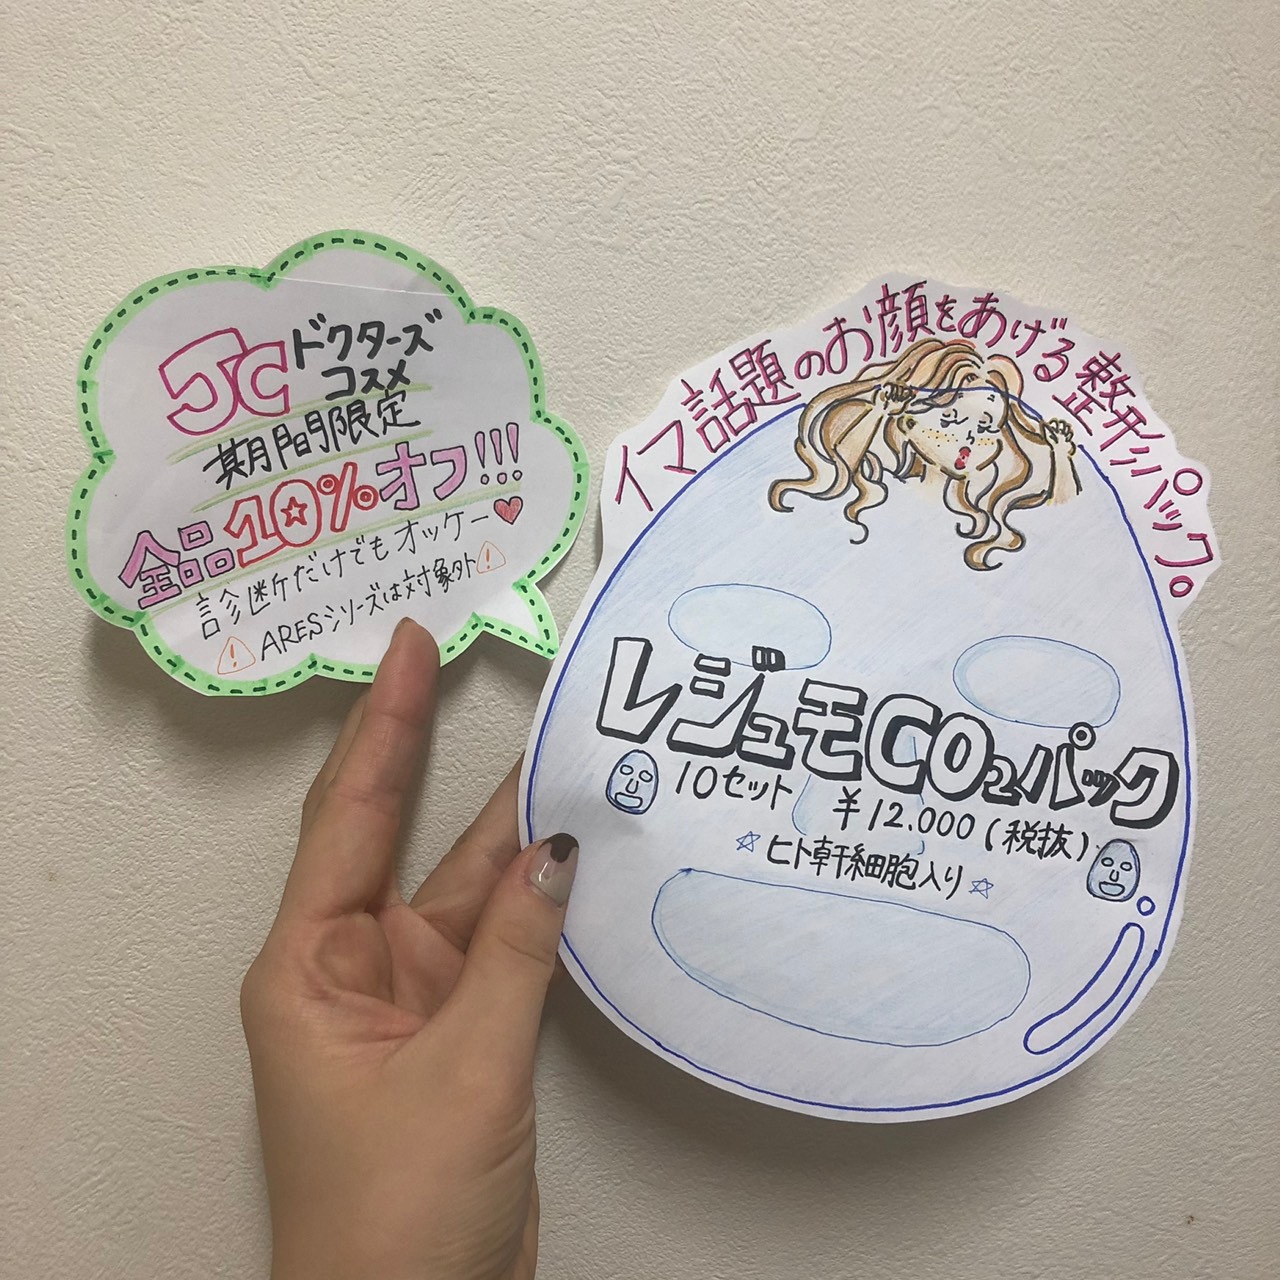 Jc ドクターズ
コスメ
期間限定
全品10%オフ!!!
診断だけでもオッケー♥
⚠ARESシリーズは対象外⚠
イマ話題のお顔をあげる整形パック。
レジュモCO2パック
10セット ¥12.000(税抜)
☆ヒト幹細胞入り☆